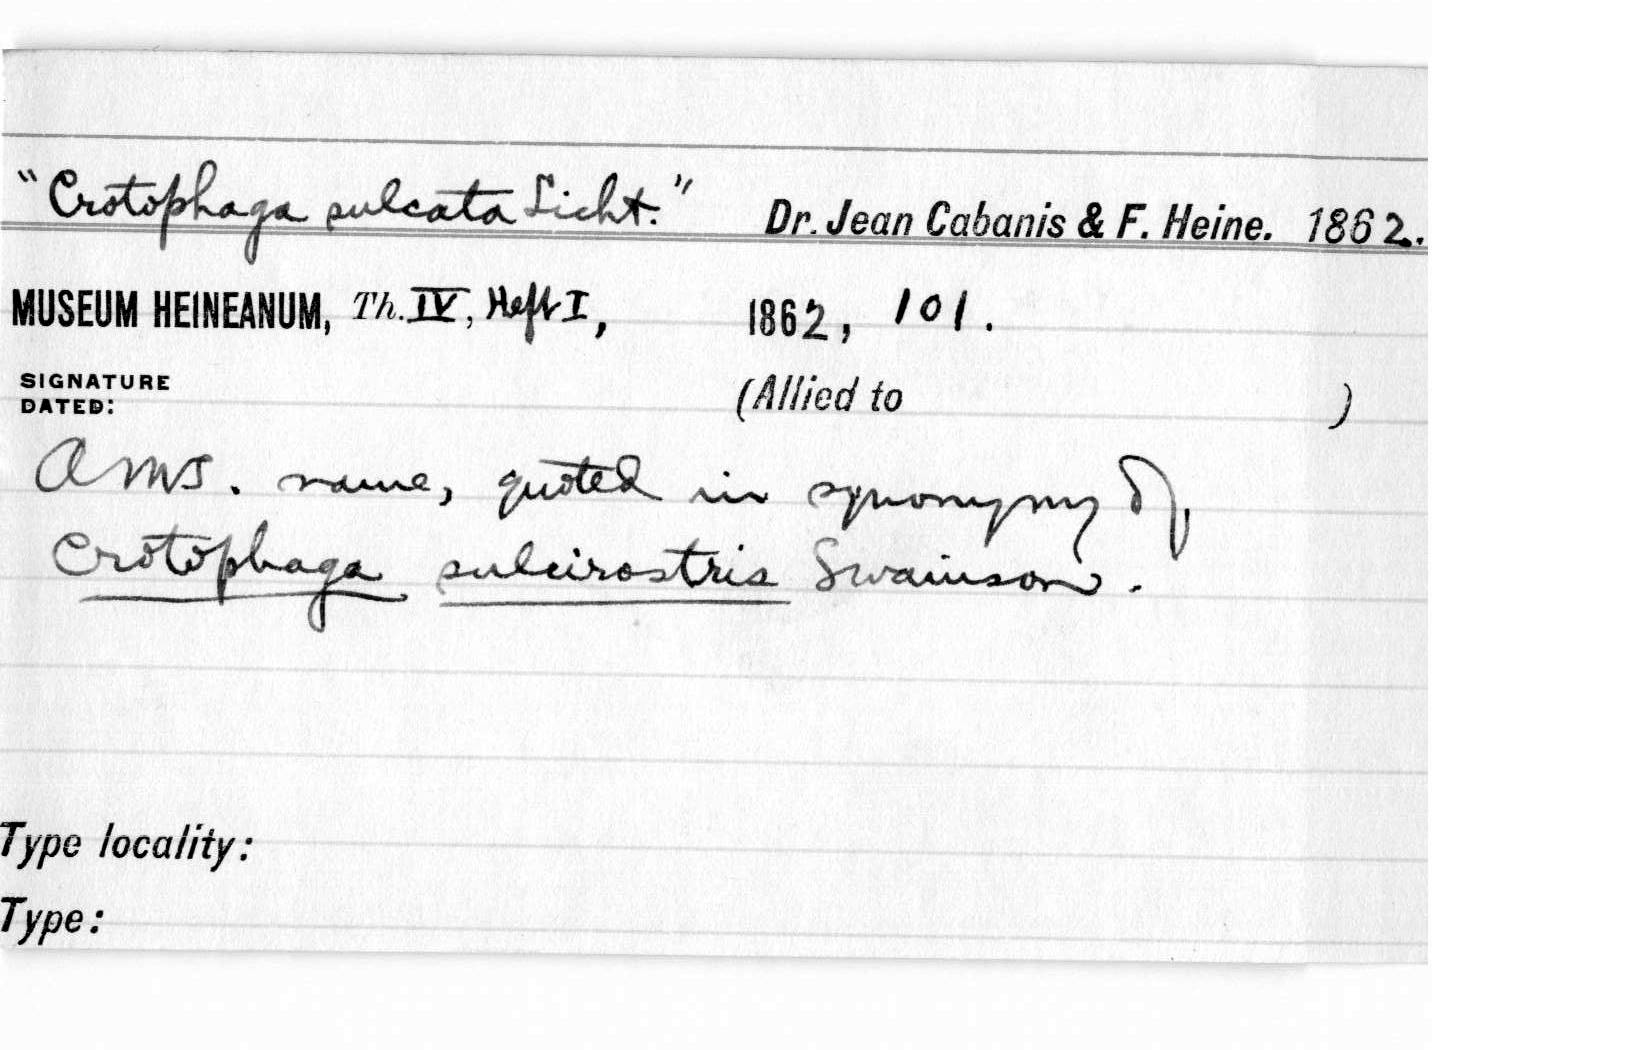 "Crotophaga sulcata Licht." Dr. Jean Cabanis & F. Heine. 1862.
MUSEUM HEINEANUM, Th. IV, Heft I, 1862, 101.
SIGNATURE
DATED: (Allied to )
A MS. name, quoted in synonymy of
Crotophaga sulcirostris Swainson.
Type locality:
Type: